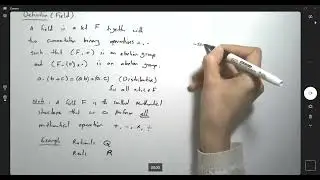 Definition (Field).
A field is a set F together with
two commutative binary operations +, ·
such that (F, +) is an abelian group
and (F-{0}, ·) is an abelian group.
a·(b+c) = (a·b)+(a·c) (Distributive)
for all a,b,c ∈ F
Note: A field F is the called mathematical
structure that we can perform all
mathematical operation +, -, ×, ÷
Example Rationals Q
Reals R